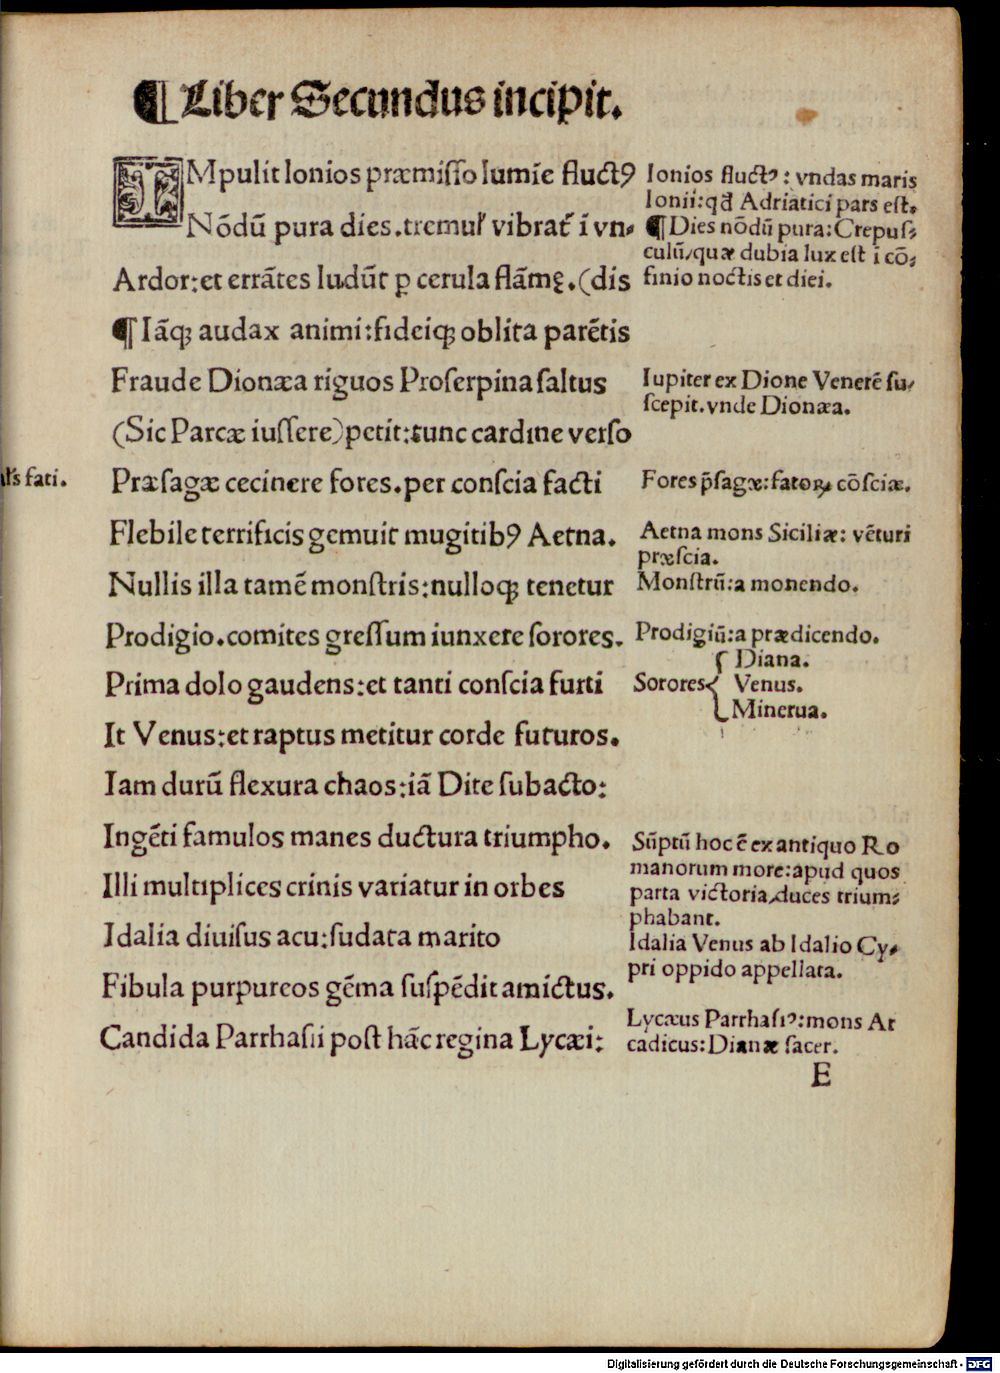 ¶ Liber Secundus incipit.
IMpulit Ionios præmiſſo lumīe fluctꝰ
Nōdū pura dies.tremul' vibrat' ī vn⸗
Ardor:et errātes ludūt ꝑ cerula flāmę.(dis
¶ Iāqꝫ audax animi:fideiqꝫ oblita parētis
Fraude Dionæa riguos Proſerpina ſaltus
(Sic Parcæ iuſſere)petit:tunc cardine verſo
Præſagæ cecinere fores.per conſcia facti
Flebile terrificis gemuit mugitibꝰ Aetna.
Nullis illa tamē monſtris:nulloqꝫ tenetur
Prodigio.comites greſſum iunxere sorores.
Prima dolo gaudens:et tanti conſcia furti
It Venus:et raptus metitur corde futuros.
Iam durū flexura chaos:iā Dite ſubacto:
Ingēti famulos manes ductura triumpho.
Illi multiplices crinis variatur in orbes
Idalia diuiſus acu:ſudata marito
Fibula purpureos gēma ſuſpēdit amictus.
Candida Parrhaſii poſt hāc regina Lycæi:
fati.
Ionios fluctꝰ: vndas maris
Ionii:qd̄ Adriatici pars eſt.
¶ Dies nōdū pura:Crepuſ⸗
culū/quæ dubia lux eſt ī cō⸗
finio noctis et diei.
Iupiter ex Dione Venerē ſu⸗
ſcepit.vnde Dionæa.
Fores p̄ſagæ:fatoꝝ cōſciæ.
Aetna mons Siciliæ: vēturi
præſcia.
Monſtrū:a monendo.
Prodigiū:a prædicendo.
Diana.
Sorores Venus.
Minerua.
Sūptū hoc ē ex antiquo Ro
manorum more:apud quos
parta victoria/duces trium⸗
phabant.
Idalia Venus ab Idalio Cy⸗
pri oppido appellata.
Lycæus Parrhaſiꝰ:mons Ar
cadicus:Dianæ ſacer.
E
Digitalisierung gefördert durch die Deutsche Forschungsgemeinschaft - DFG